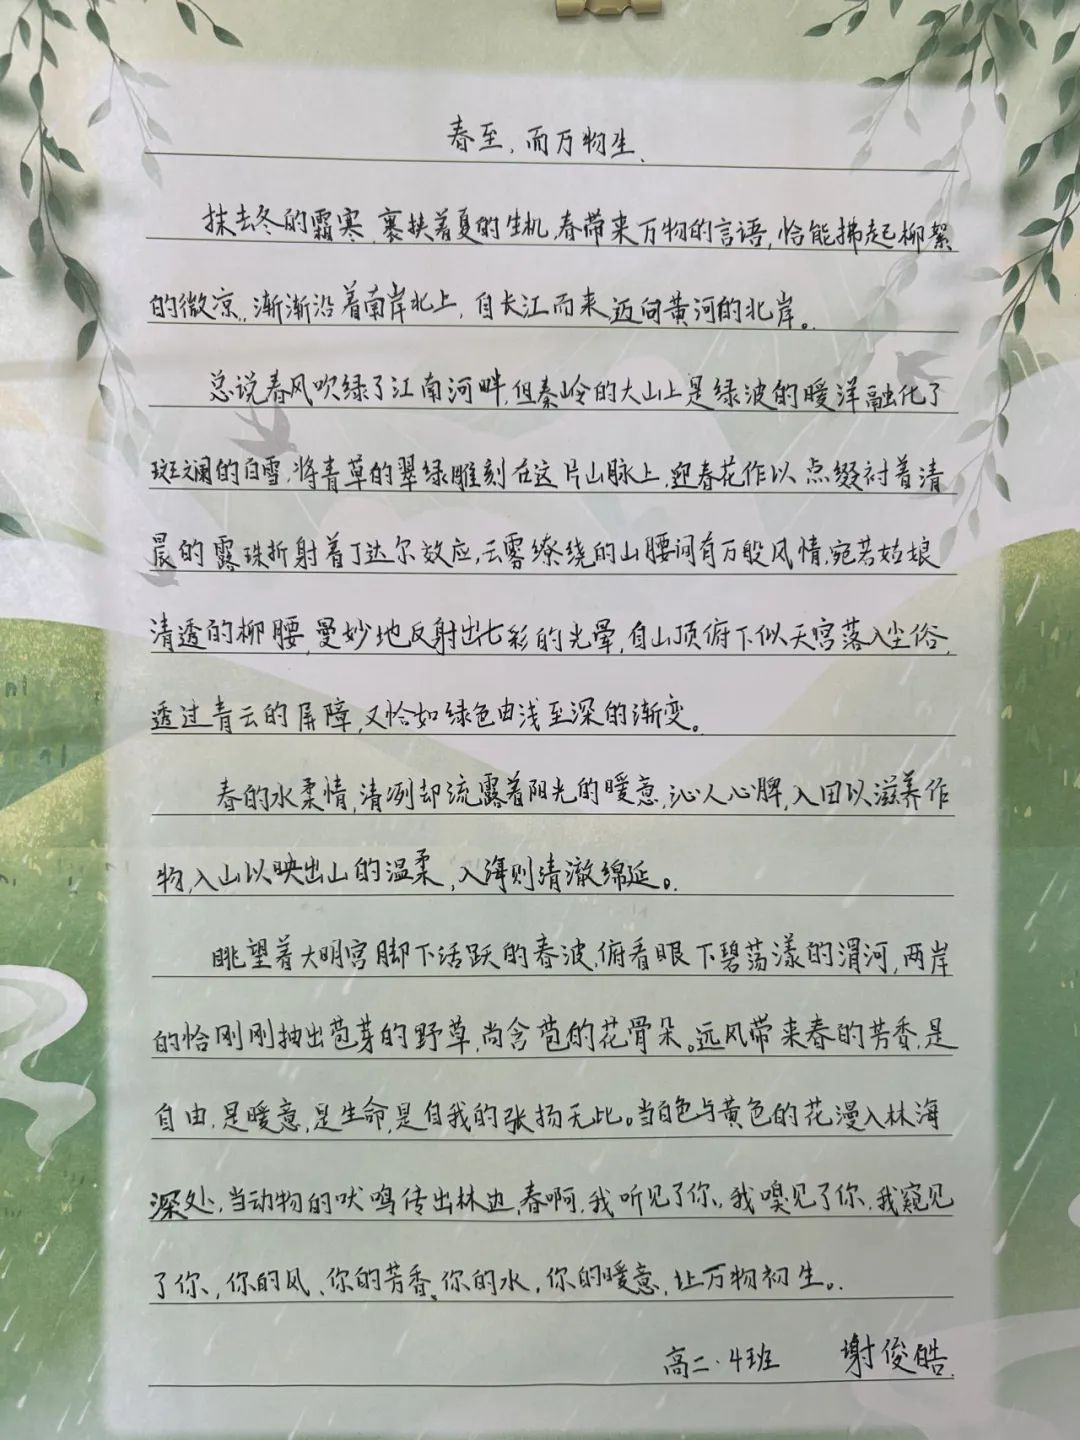 春至,而万物生、
抹去冬的霜寒,裹挟着夏的生机,春带来万物的言语,恰能拂起柳絮
的微凉,渐渐沿着南岸北上,自长江而来迈向黄河的北岸。
总说春风吹绿了江南河畔,但秦岭的大山上是绿波的暖洋融化了
斑斓的白雪,将青草的翠绿雕刻在这片山脉上,迎春花作以点缀衬着清
晨的露珠折射着丁达尔效应,云雾缭绕的山腰间有万般风情,宛若姑娘
清透的柳腰,曼妙地反射出七彩的光晕,自山顶俯下似天宫落入尘俗,
透过青云的屏障,又恰如绿色由浅至深的渐变。
春的水柔情,清冽却流露着阳光的暖意,沁人心脾,入田以滋养作
物,入山以映出山的温柔,入海则清澈绵延。
眺望着大明宫脚下活跃的春波,俯看眼下碧荡漾的渭河,两岸
的恰刚刚抽出苞芽的野草,尚含苞的花骨朵。远风带来春的芳香,是
自由,是暖意,是生命,是自我的张扬无比。当白色与黄色的花漫入林海
深处,当动物的吠鸣传出林边,春啊,我听见了你,我嗅见了你,我窥见
了你,你的风、你的芳香、你的水,你的暖意,让万物初生。
高二·4班 谢俊皓